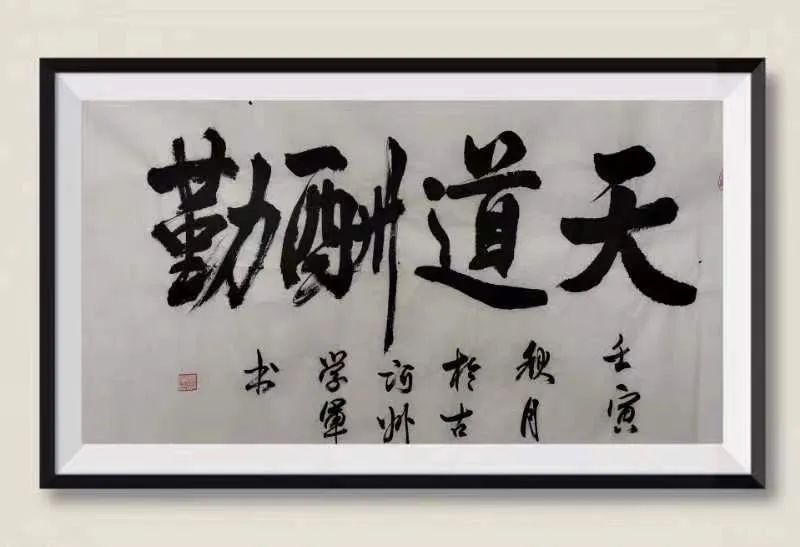 天道酬勤
壬寅
秋月
於古
河州
学軍
书